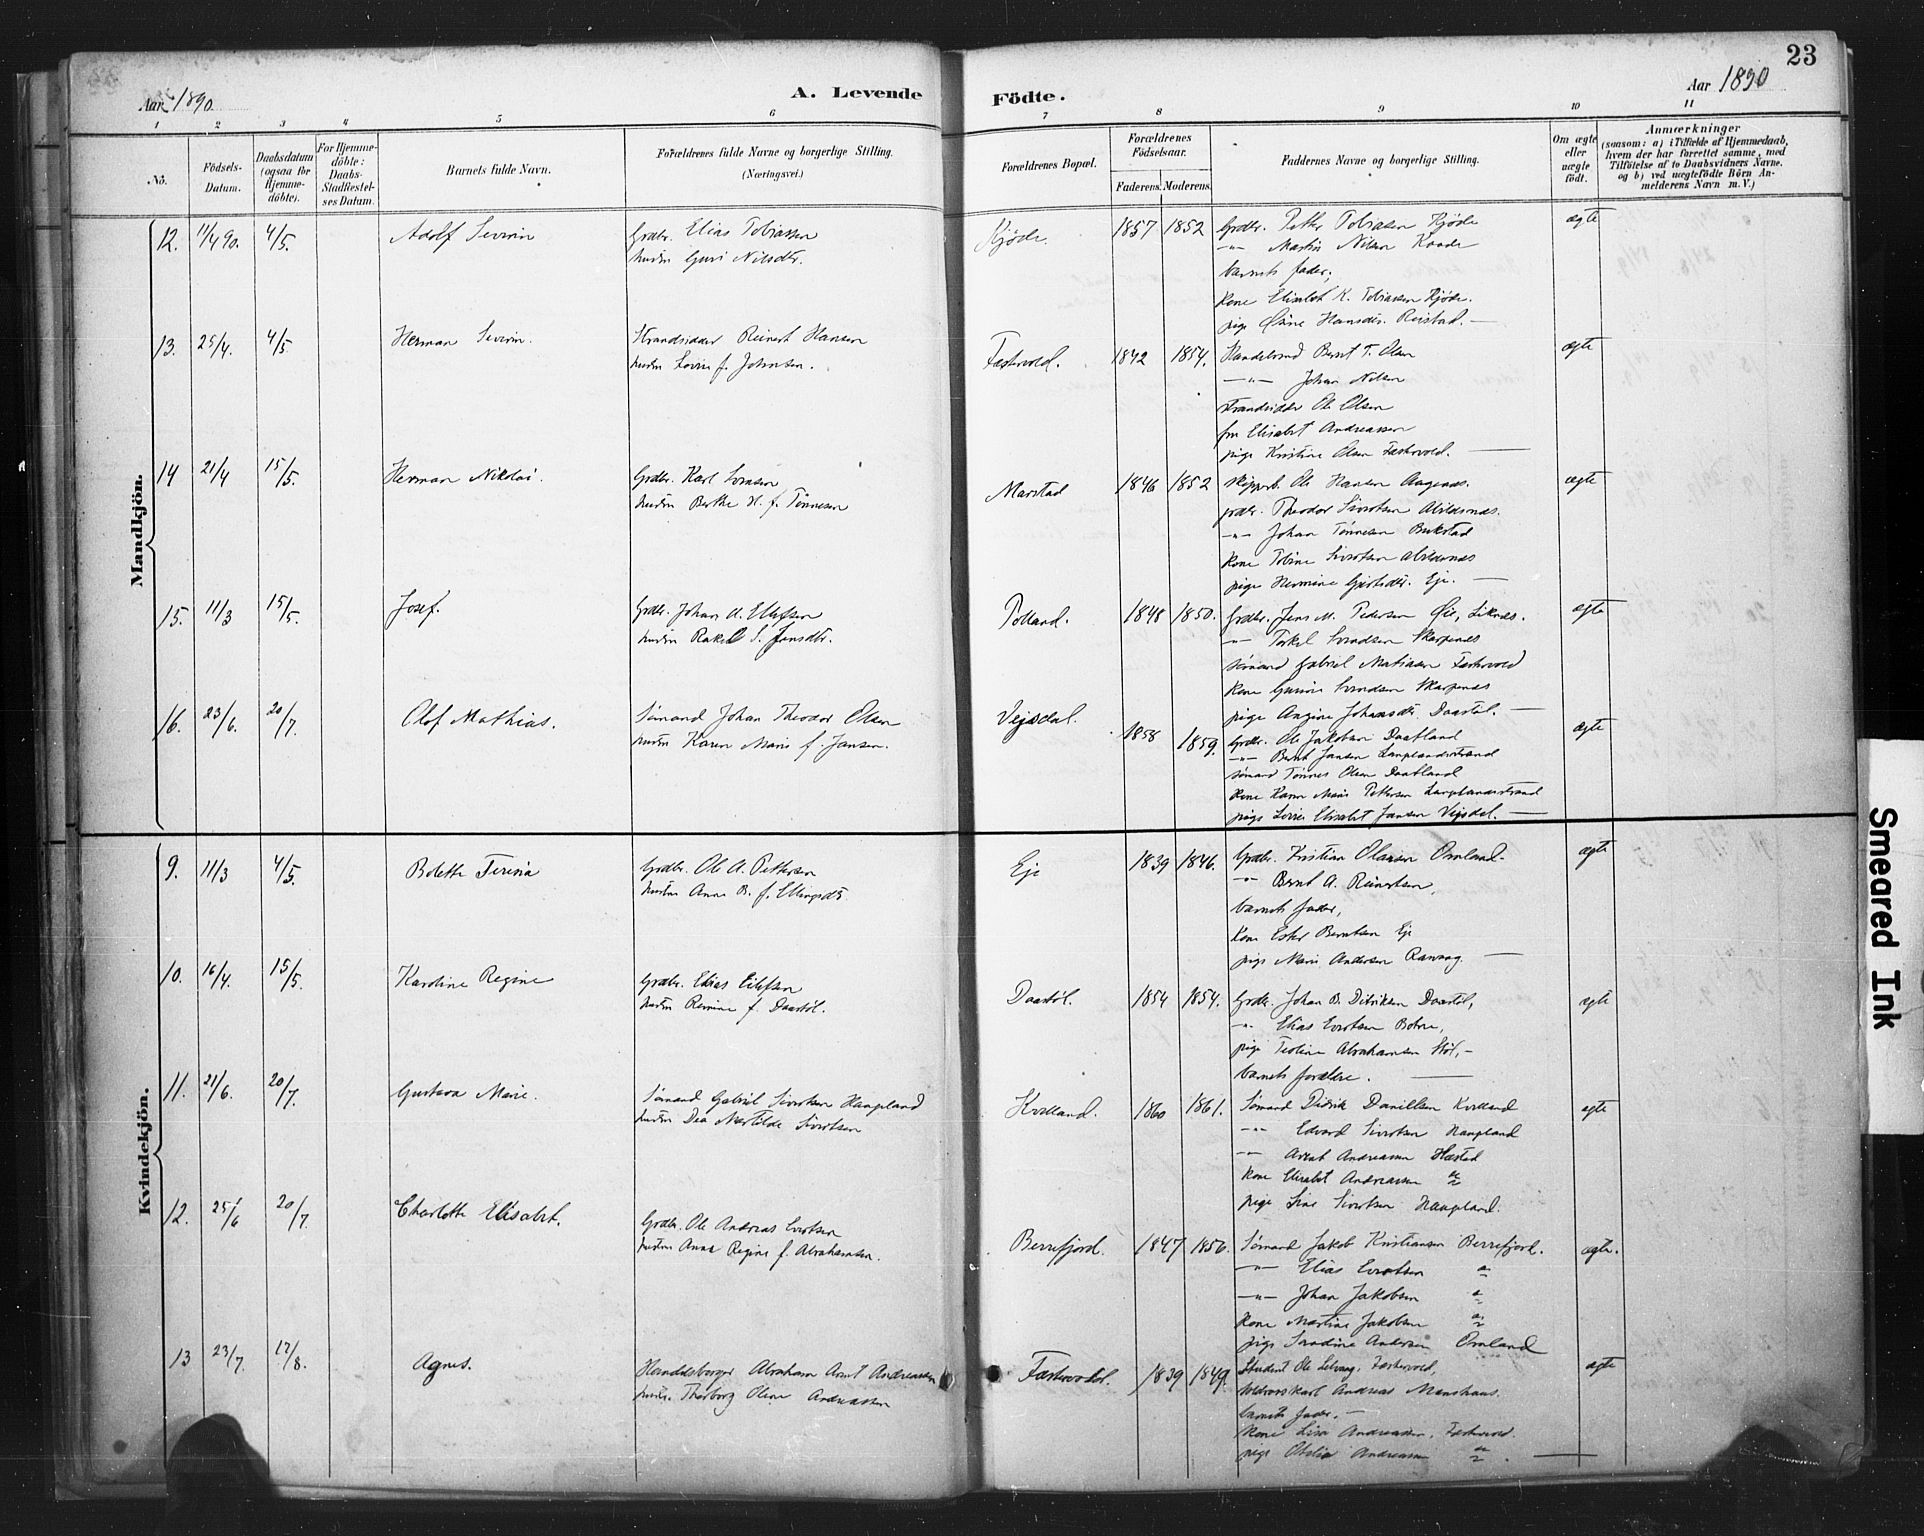 23
Aar 1890.
A. Levende
Födte.
Aar 1890
1 2 3 4 5 6 7 8 9 10 11
No.
Födsels-Datum.
Daabsdatum (ogsaa for Hjemmedöbte).
For Hjemmedöbte: Daabs-Stadfæstelses Datum.
Barnets fulde Navn.
Forældrenes fulde Navne og borgerlige Stilling. (Næringsvei.)
Forældrenes Bopæl.
Forældrenes Födselsaar.
Faderens. Moderens.
Faddernes Navne og borgerlige Stilling.
Om ægte eller uægte födt.
Anmærkninger (saasom: a) i Tilfælde af Hjemmedaab, hvem der har forrettet samme, med Tilföielse af to Daabsvidners Navne. og b) ved uægtefödte Börn Anmelderens Navn m. V.)
Mandkjön.
12. 11/4 90. 4/5. Adolf Severin
Grdbr. Elias Tobiassen
hustru Guri Nilsdtr.
Kjöde. 1857 1852
Grdbr. Petter Tobiasen Kjöde
-"- Martin Nilsen Kaade
barnets fader,
kone Elisabet K. Tobiassen Kjöde.
pige Hansdtr. Reistad. —
ægte
13. 25/4. 4/5 Herman Severin.
Strandsidder Reinert Hansen
hustru Lovise f. Johnsen.
Fæstervold. 1842 1854.
Handelsmd Bernt T. Olsen
-"- Johan Nilsen
strandsidder Ole Olsen
fru Elisabet Andreassen
pige Kristine Olsen Fæstervold. —
ægte
14 21/4 15/5. Herman Nikolai.
Grdbr. Karl
hustru Berthe H. f. Tönnesen
Marstad 1846 1852
Ole Hansen Aagenæs.
grdbr. Theodor Sivertsen Abildsnæs.
-"- Johan Tönnesen Bukstad
kone Tobine Sivertsen Abildsnæs
pige Hermine Eje. —
ægte
15. 11/3 15/5. Josef.
Grdbr. Johan A. Ellefsen
hustru Rakel S. Jensdtr.
Polland. 1848 1850.
Grdbr. Jens M. Pedersen Öie, Liknes.
-"- Torkel Skarpenes
sömand Gabriel Matiasen Fæstervold
kone Skarpenes
pige Angine Johansdtr. Daastöl. —
ægte
16. 23/6. 20/7. Olof Mathias.
Sömand Johan Theodor Olsen
hustru Karen Marie f. Jansen.
Vejsdal. 1858 1859.
Grdbr. Ole Jakobsen Daatland
-"- Bernt Jansen
sömand Tönnes Olsen Daatland
kone Karen Marie Pettersen
pige Elisabet Jansen Vejsdal. —
ægte
Kvindekjön.
9. 11/3 4/5. Bolette Terina
Grdbr. Ole A. Pettersen
hustru Anne B. f. Ellingsdtr
Eje 1839 1846.
Grdbr. Kristian Olausen Omland.
-"- Bernt A. Reinertsen,
barnets fader,
kone Ester Berntsen Eje
pige Marie Andersen —
ægte
10. 16/4. 15/5. Karoline Regine
Grdbr. Elias Eilefsen
hustru f. Daastöl.
Daastöl. 1854 1854.
Grdbr. Johan B. Didriksen Daastöl,
-"- Elias Evertsen
pige Teoline Abrahamsen Stöl, —
barnets forældre. —
ægte
11. 21/6. 20/7. Gustava Marie.
Sömand Gabriel Sivertsen Haugland
hustru Dea Martilde Sivertsen
Kvelland. 1860 1861.
Sömand Didrik Daniellsen Kvelland
-"- Edvard Sivertsen Haugland
-"- Arent Andreassen
kone Elisabet Andreassen "
pige Sine Sivertsen Haugland.
ægte
12. 25/6 20/7. Charlotte Elisabet.
Grdbr. Ole Andreas Evertsen
hustru Anna Regine f. Abrahamsen.
Berrefjord. 1847 1856.
Sömand Jakob Kristiansen Berrefjord.
-"- Elias Evertsen "
-"- Johan Jakobsen "
kone Martine Jakobsen "
pige Andersen Omland
ægte.
13 23/7. 17/8. Agnes.
Handelsborger Abraham Arnt Andreassen
hustru Thorborg Oline Andreassen
Fæstervold. 1839 1849.
Student Ole Fæstervold,
Andreas
barnets fader. —
kone Lisa Andreassen, Fæstervold.
pige Andreassen " —
ægte
Smeared Ink